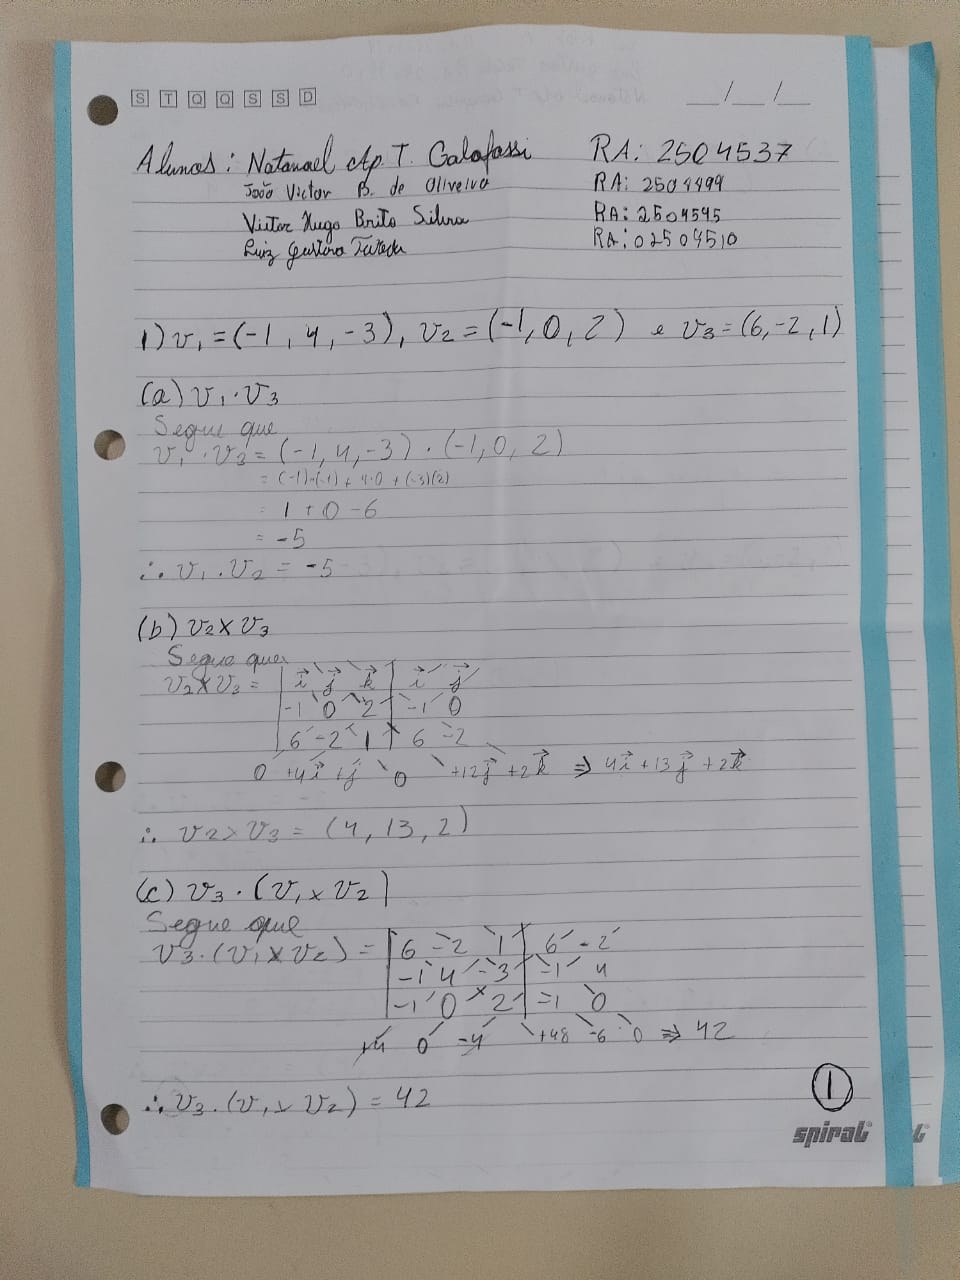 S T Q Q S S D
__/__/__
Alunos: Natanael Ap. T. Galafassi RA: 2504537
João Victor B. de Oliveira RA: 2504499
Victor Hugo Brito Silva RA: 2504545
Luiz Gustavo RA: 02504510
1) v₁ = (-1, 4, -3), v₂ = (-1, 0, 2) e v₃ = (6, -2, 1)
(a) v₁ · v₃
Segue que
v₁ · v₂ = (-1, 4, -3) · (-1, 0, 2)
= (-1)·(-1) + 4·0 + (-3)(2)
= 1 + 0 - 6
= -5
∴ v₁ · v₂ = -5
(b) v₂ × v₃
Segue que
v₂ × v₃ = | i⃗ j⃗ k⃗ | i⃗ j⃗
-1 0 2 | -1 0
6 -2 1 | 6 -2
0 +4i⃗ +j⃗ 0 +12j⃗ +2k⃗ ⇒ 4i⃗ + 13j⃗ + 2k⃗
∴ v₂ × v₃ = (4, 13, 2)
(c) v₃ · (v₁ × v₂)
Segue que
v₃ · (v₁ × v₂) = | 6 -2 1 | 6 -2
-1 4 -3 | -1 4
-1 0 2 | -1 0
+4 0 -4 +48 -6 0 ⇒ 42
∴ v₃ · (v₁ × v₂) = 42
1
spiral